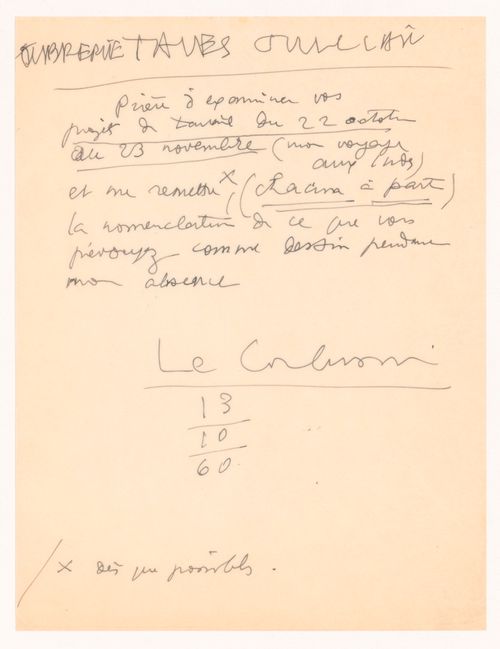 OUBRERIE TAVES OUILLAÎ
Prière d'examiner vos
projets de travail du 22 octobre
au 23 novembre (mon voyage
aux Indes)
et me remettre x, (chacun à part)
la nomenclature de ce que vous
prévoyez comme dessin pendant
mon absence
Le Corbusier
13
10
60
x dès que possible.